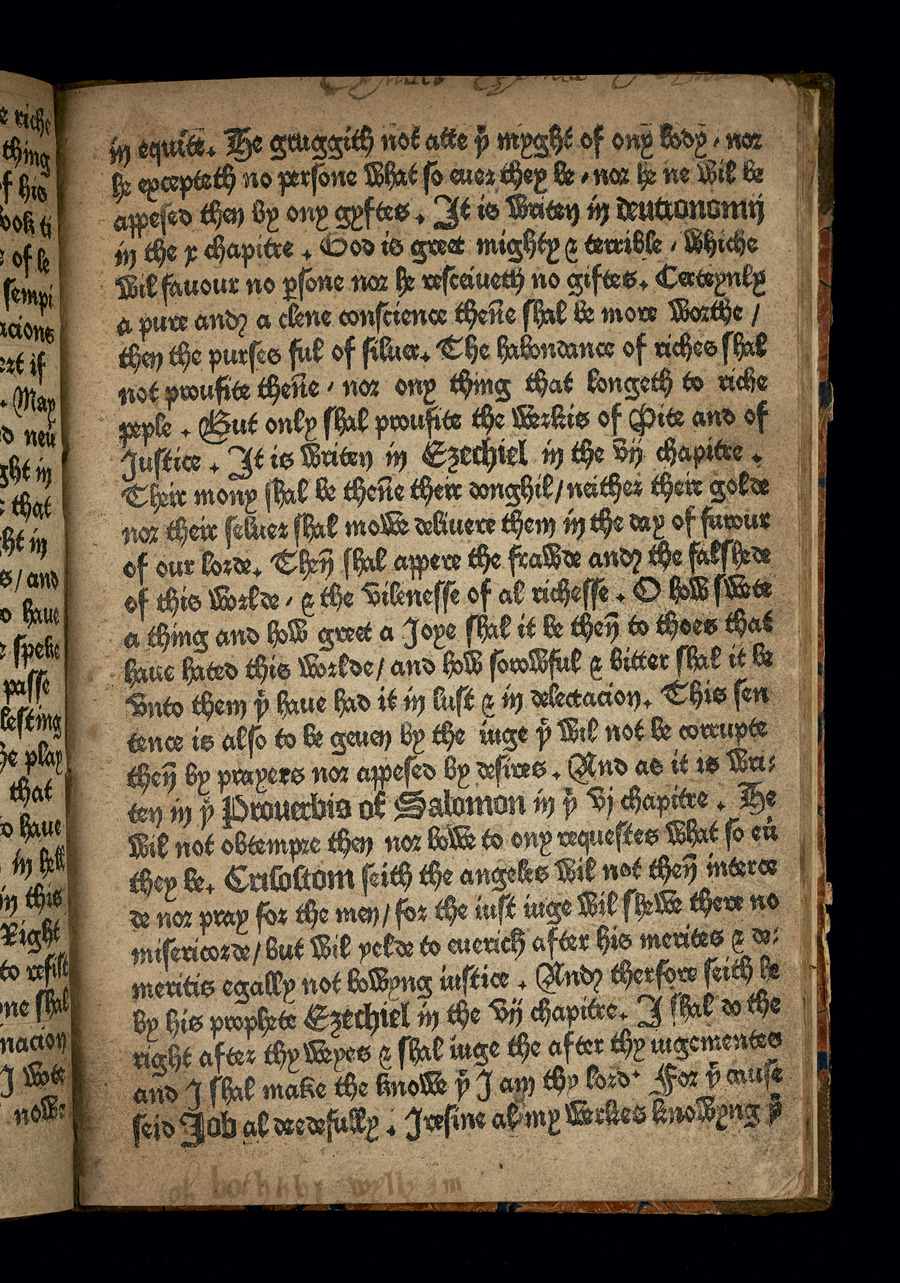 e riche
thing
f his
ook ti
e of le
sempi
acions
ert if
. May
d neu̅
ght in
e that
ht in
s/ and
o haue
e speke
passe
lesting
he play
that
to haue
in hell
in this
Right
to resist
one shal
nacion
J wote
now⸗
in equite. He gruggith not atte yͤ myght of ony body , nor
he excepteth no persone what so euer they be , nor he ne wil be
appesed then by ony gyftes . It is writen in deutronomij
in the x chapitre . God is greet mighty & terrible , whiche
wil fauour no ꝑsone nor he resceiueth no giftes. Certeynly
a pure and a clene conscience then̅e shal be more worthe /
then the purses ful of siluer. The habondance of riches shal
not proufite then̅e , nor ony thing that longeth to riche
peple . But only shal proufite the werkis of Pite and of
Justice . It is writen in Ezechiel in the vij chapitre .
Their mony shal be then̅e their donghil/ neither their golde
nor their seluer shal mowe deliuere them in the day of furour
of our lorde. Then̅ shal appere the frawde and the falshede
of this worlde , & the vilenesse of al richesse . O how swete
a thing and how greet a Joye shal it be then̅ to thoes that
haue hated this worlde/ and how sorowful & bitter shal it be
vnto them yͭ haue had it in lust & in delectacion. This sen
tence is also to be geuen by the iuge yͭ wil not be corrupte
then̅ by prayers nor appesed by desires . And as it is wri⸗
ten in yͤ Prouerbis of Salomon in yͤ vj chapitre . He
wil not obtempre then nor bowe to ony requestes what so eu̅
they be. Crisostom seith the angeles wil not then̅ interce
de nor pray for the men/ for the iust iuge wil shewe there no
misericorde/ but wil yelde to euerich after his merites & de⸗
meritis egally not bowyng iustice . And therfore seith he
by his prophete Ezechiel in the vij chapitre. J shal do the
right after thy weyes & shal iuge the after thy iugementes
and J shal make the knowe yͭ J am thy lord. For yͤ cause
seid Job al dredefully . J resine al my werkes knowyng yͭ